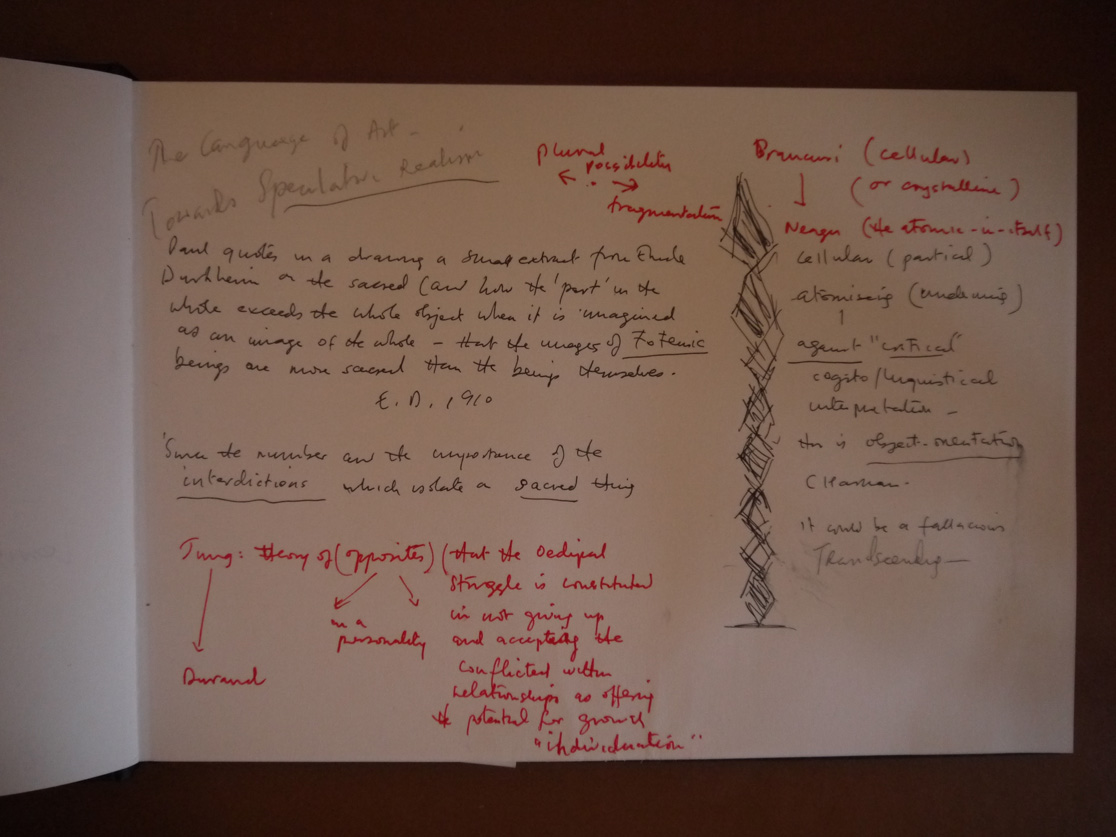 The Language of Art -
Towards Speculative Realism
Paul quotes in a drawing a small extract from Emile
Durkheim on the sacred (and how the 'part' in the
whole exceeds the whole object when it is imagined
as an image of the whole - that the images of totemic
beings are more sacred than the beings themselves.
E. D. 1910
'Since the number and the importance of the
interdictions which isolate a sacred thing
Jung: theory of (opposites) (that the Oedipal
struggle is constituted
in not giving up
and accepting the
conflicted within
relationships as offering
the potential for growth
"individuation"
in a
personality
Durand
plural
possibilities
fragmentation
Brancusi (cellular)
(or crystalline)
Neagu (the atomic-in-itself)
cellular (partial)
atomising (
agent "critical"
cogito/linguistical
interpretation -
this is object-orientation
(Harman.
it could be a fallacious
Transcending -